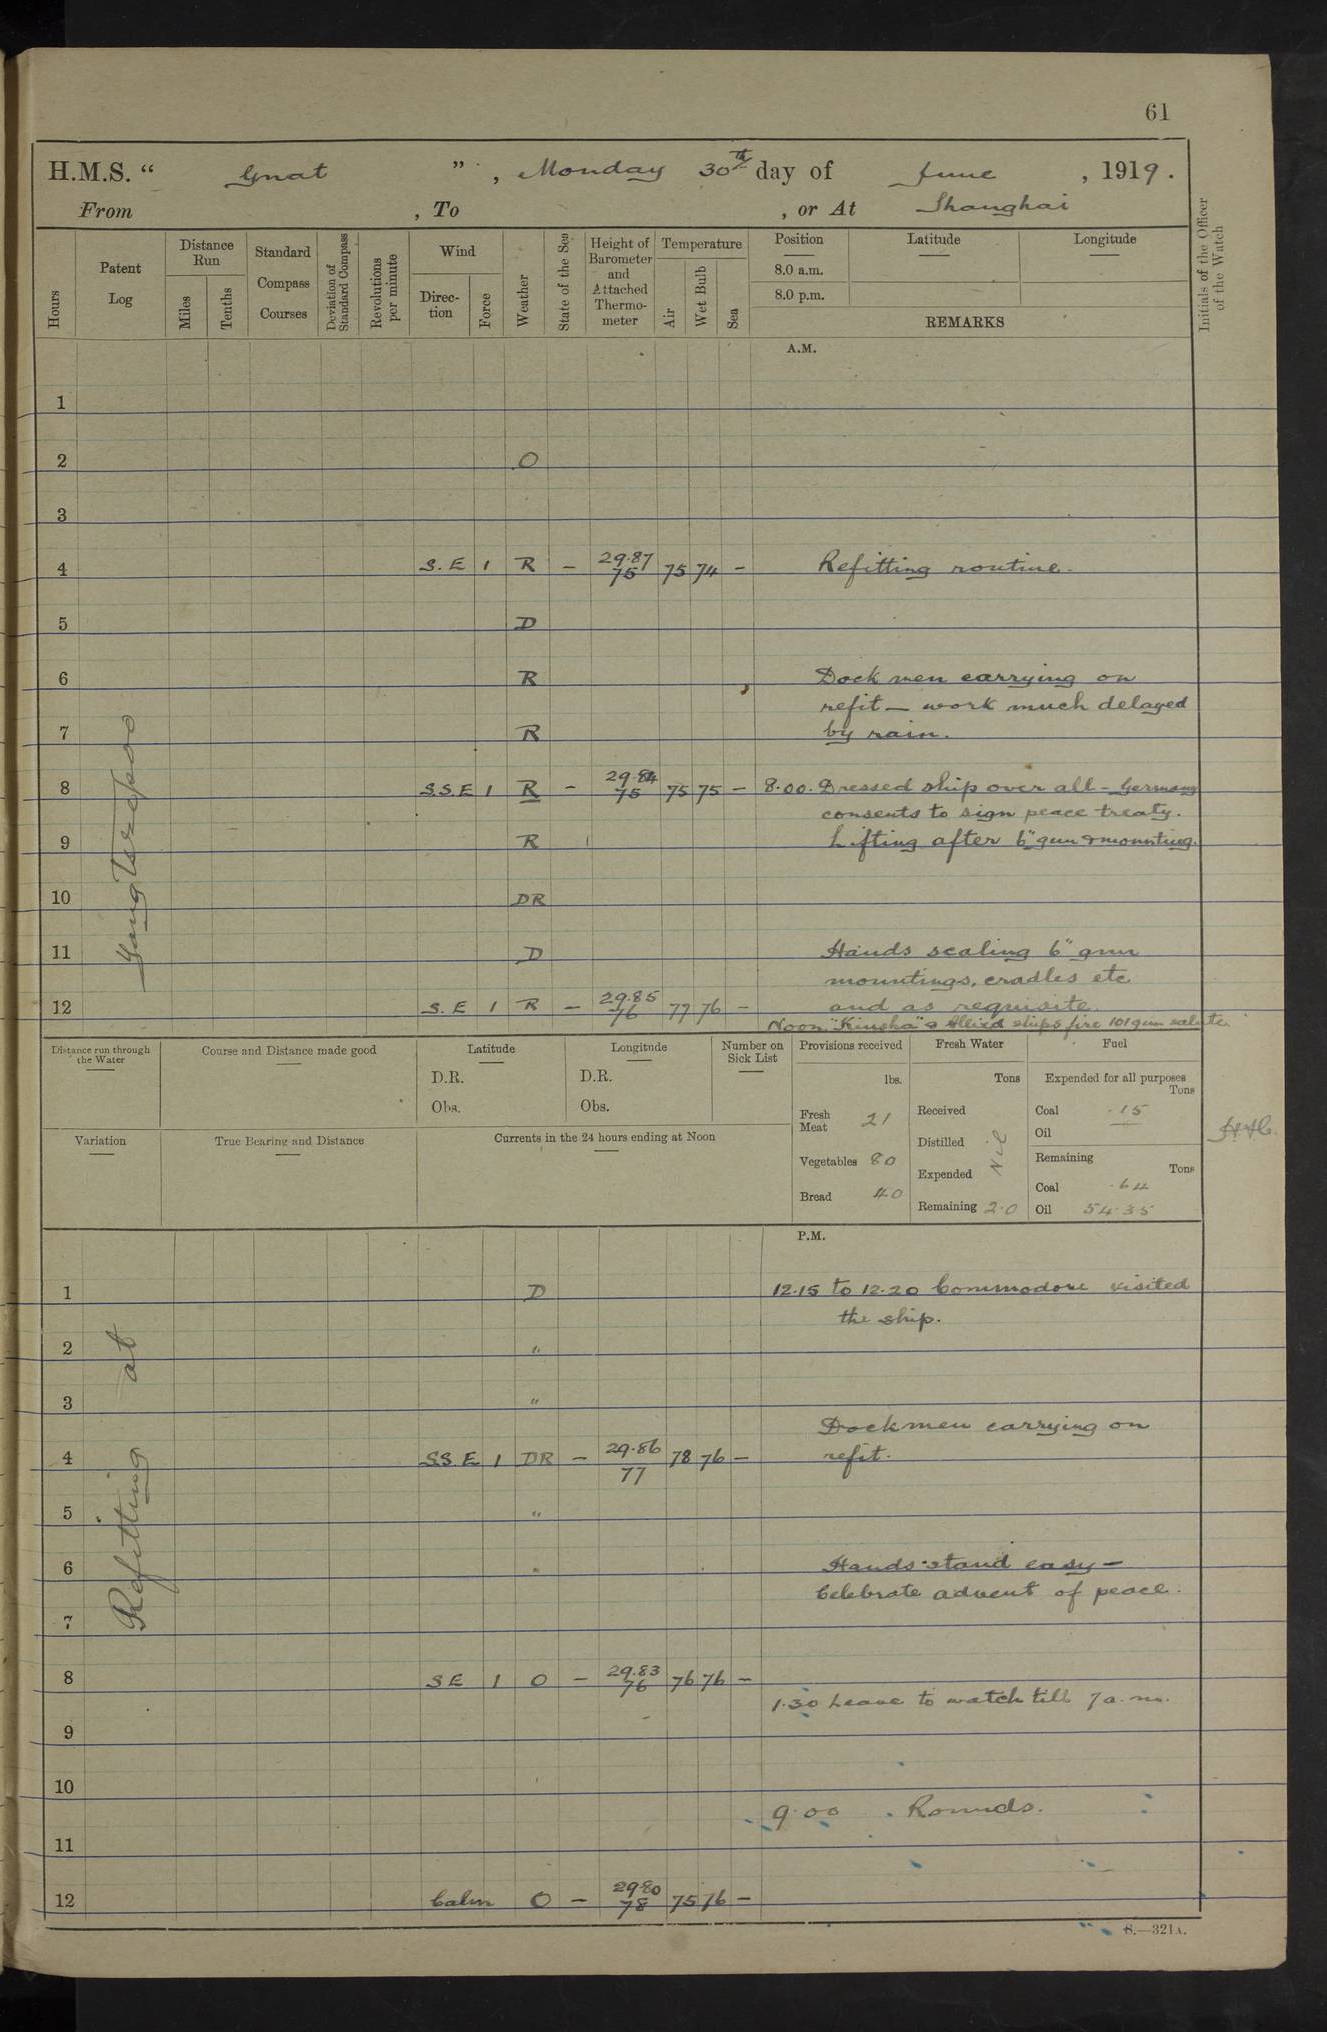 61
H.M.S. " Gnat ", Monday 30th day of June, 1919.
From , To , or At Shanghai
Hours
Patent Log
Distance Run
Miles
Tenths
Standard Compass Courses
Deviation of Standard Compass
Revolutions per minute
Wind
Direction
Force
Weather
State of the Sea
Height of Barometer and Attached Thermometer
Temperature
Air
Wet Bulb
Sea
Position
8.0 a.m.
8.0 p.m.
Latitude
Longitude
REMARKS
Initials of the Officer of the Watch
A.M.
1
2 O
3
4 S.E 1 R – 29.87 75 75 74 – Refitting routine.
5 D
6 R Dock men carrying on
refit – work much delayed
7 R by rain.
8 S.S.E 1 R – 29.84 75 75 75 – 8.00. Dressed ship over all – Germany
consents to sign peace treaty.
9 R Lifting after 6" gun & mounting.
10 DR
11 D Hands scaling 6" gun
mountings, cradles etc
12 S.E 1 R – 29.85 76 77 76 – and as requisite.
Noon "Kinsha" & Allied ships fire 101 gun salute.
Yangtszepoo
Distance run through the Water
Course and Distance made good
Latitude
D.R.
Obs.
Longitude
D.R.
Obs.
Number on Sick List
Provisions received
lbs.
Fresh Meat 21
Vegetables 80
Bread 40
Fresh Water
Tons
Received
Distilled Nil
Expended
Remaining 2.0
Fuel
Expended for all purposes
Tons
Coal .15
Oil
Remaining
Tons
Coal .64
Oil 54.35
Variation
True Bearing and Distance
Currents in the 24 hours ending at Noon
P.M.
1 D 12.15 to 12.20 Commodore visited
the ship.
2 "
3 "
Dockmen carrying on
4 SSE 1 DR – 29.86 77 78 76 – refit.
5 "
6 " Hands stand easy –
Celebrate advent of peace.
7
8 SE 1 O – 29.83 76 76 76 –
1.30 Leave to watch till 7 a.m.
9
10
9.00 . Rounds.
11
12 Calm O – 29.80 78 75 76 –
Refitting at
S.—321A.